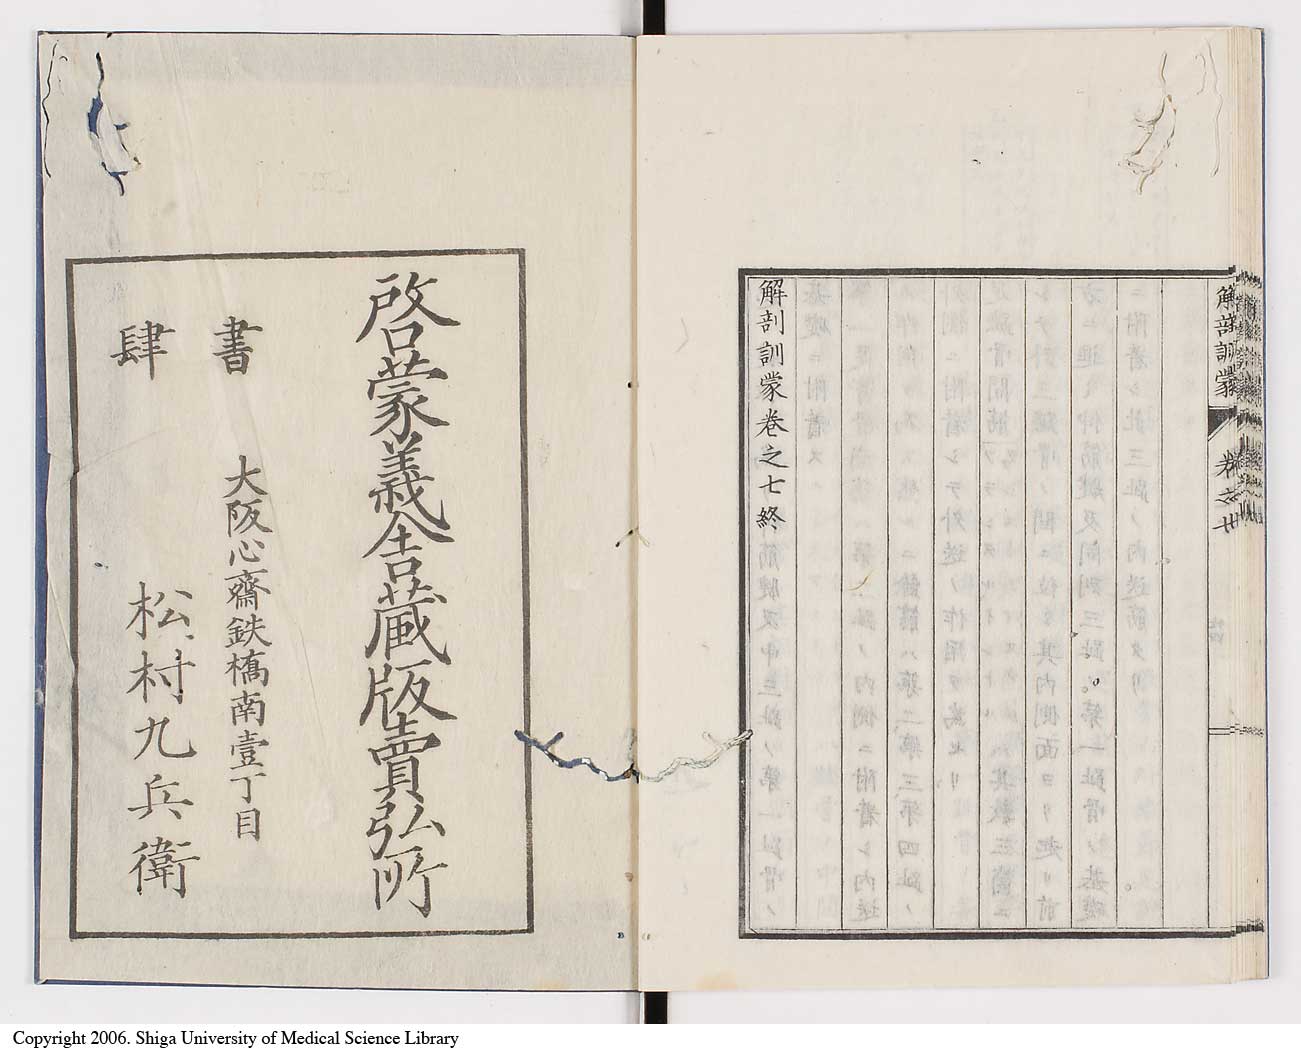 解剖訓蒙
解剖訓蒙卷之七終
啓蒙義舎蔵版賣弘所
書肆
大阪心齋鉄橋南壹丁目
松村九兵衛
Copyright 2006. Shiga University of Medical Science Library